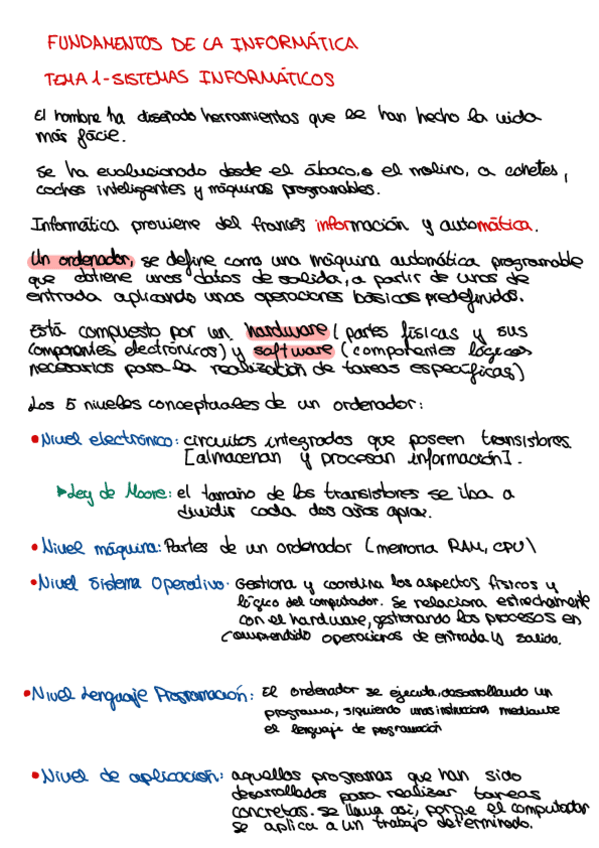 FUNDAMENTOS DE LA INFORMÁTICA
TEMA 1-SISTEMAS INFORMÁTICOS
El hombre ha diseñado herramientas que se han hecho la vida
más fácil.
Se ha evolucionado desde el ábaco, o el molino, a cohetes,
coches inteligentes y máquinas programables.
Informática proviene del francés información y automática.
Un ordenador, se define como una máquina automática programable
que obtiene unos datos de salida, a partir de unos de
entrada aplicando unas operaciones básicas predefinidas.
Está compuesto por un hardware (partes físicas y sus
componentes electrónicos) y software (componentes lógicos
necesarios para la realización de tareas específicas)
Los 5 niveles conceptuales de un ordenador:
• Nivel electrónico: circuitos integrados que poseen transistores.
[almacenan y procesan información].
▸Ley de Moore: el tamaño de los transistores se iba a
dividir cada dos años aprox.
• Nivel máquina: Partes de un ordenador (memoria RAM, CPU)
• Nivel Sistema Operativo: Gestiona y coordina los aspectos físicos y
lógico del computador. Se relaciona estrechamente
con el hardware, gestionando los procesos en
comprendido operaciones de entrada y salida.
• Nivel Lenguaje Programación: El ordenador se ejecuta, desarrollando un
programa, siguiendo unas instrucciones mediante
el lenguaje de programación
• Nivel de aplicación: aquellos programas que han sido
desarrollados para realizar tareas
concretas. Se llama así, porque el computador
se aplica a un trabajo determinado.